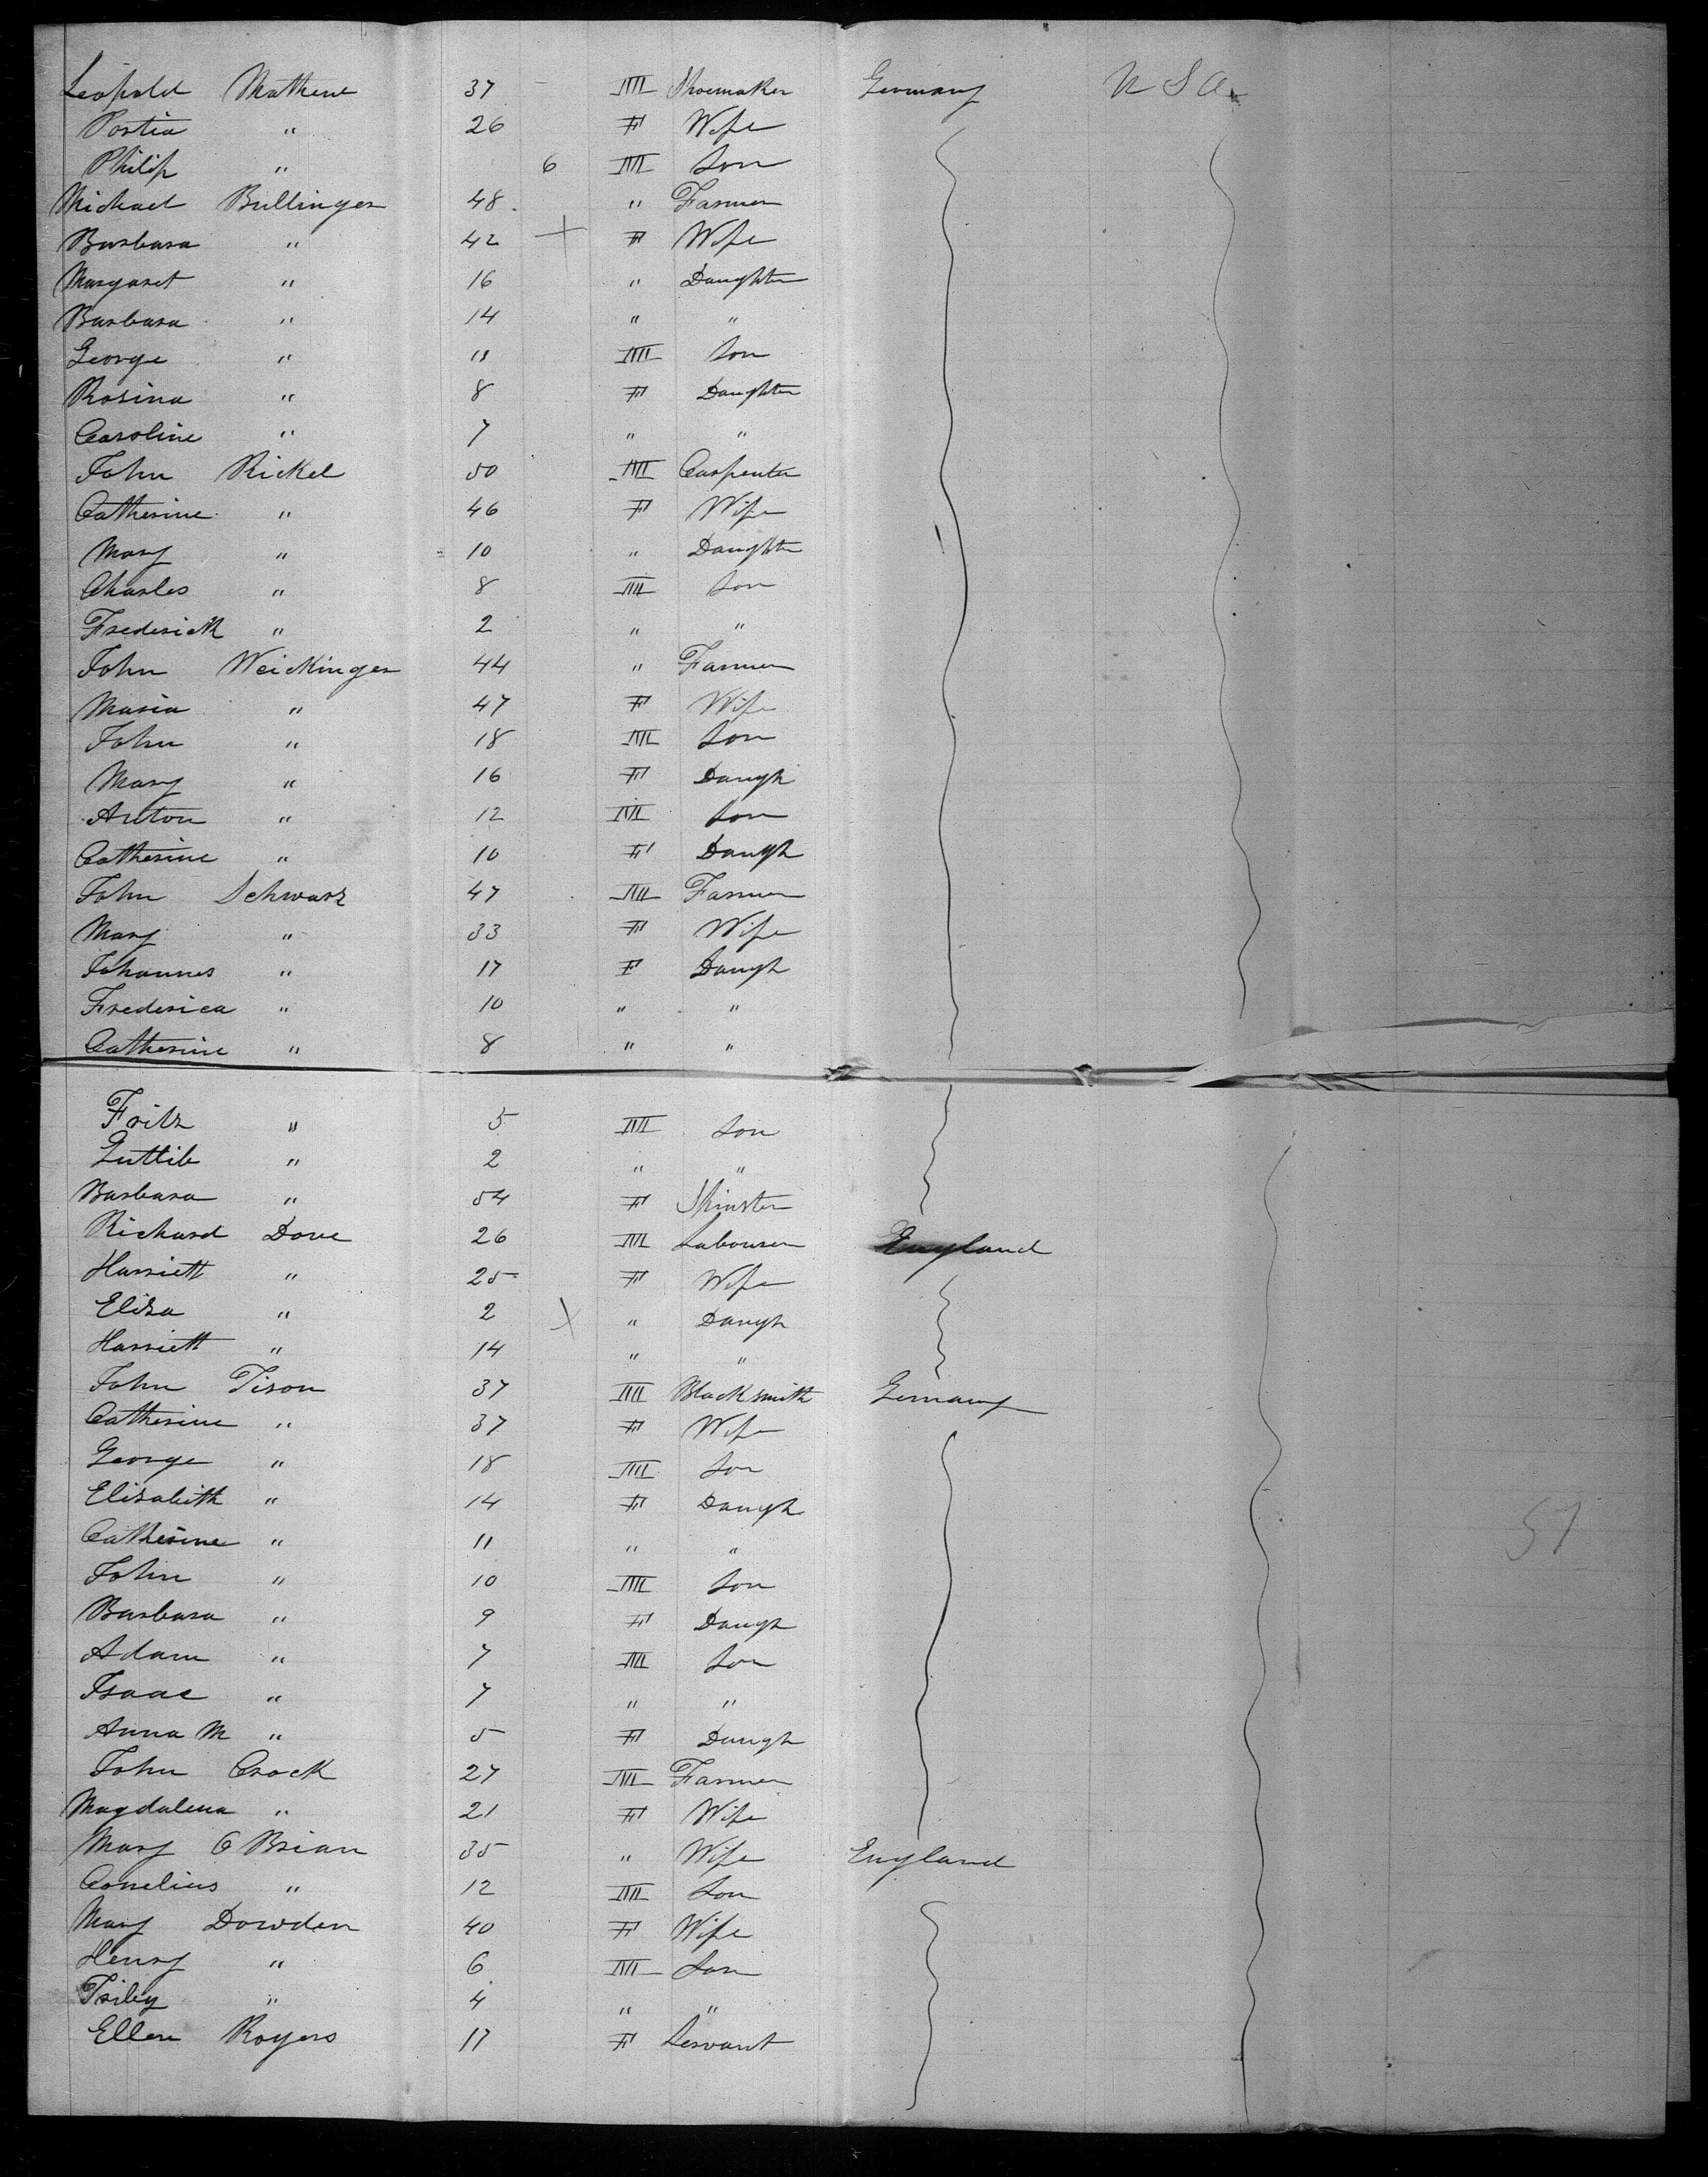 Leopold Mathene 37 - M Shoemaker Germany U S A.
Portia " 26 F Wife
Philip " 6 M Son
Michael Bullinger 48. " Farmer
Barbara " 42 + F Wife
Margaret " 16 " Daughter
Barbara " 14 " "
George " 11 M Son
Rosina " 8 F Daughter
Caroline " 7 " "
John Rickel 50 M Carpenter
Catherine " 46 F Wife
Mary " 10 " Daughter
Charles " 8 M Son
Frederick " 2 " "
John Weickinger 44 " Farmer
Maria " 47 F Wife
John " 18 M Son
Mary " 16 F Daugh
Anton " 12 M Son
Catherine " 10 F Daugh
John Schwarz 47 M Farmer
Mary " 33 F Wife
Johannes " 17 F Daugh
Frederica " 10 " "
Catherine " 8 " "
Fritz " 5 M Son
Guttib " 2 " "
Barbara " 54 F Spinster
Richard Dove 26 M Labourer England
Harriett " 25 F Wife
Eliza " 2 X " Daugh
Harriett " 14 " "
John Tison 37 M Blacksmith Germany
Catherine " 37 F Wife
George " 18 M Son
Elizabeth " 14 F Daugh
Catherine " 11 " "
John " 10 M Son
Barbara " 9 F Daugh
Adam " 7 M Son
Isaac " 7 " "
Anna M " 5 F Daugh
John Crock 27 M Farmer
Magdalena " 21 F Wife
Mary O Brian 35 " Wife England
Conelius " 12 M Son
Mary Dowden 40 F Wife
Henry " 6 M Son
" 4 " "
Ellen Rogers 17 F Servant
51